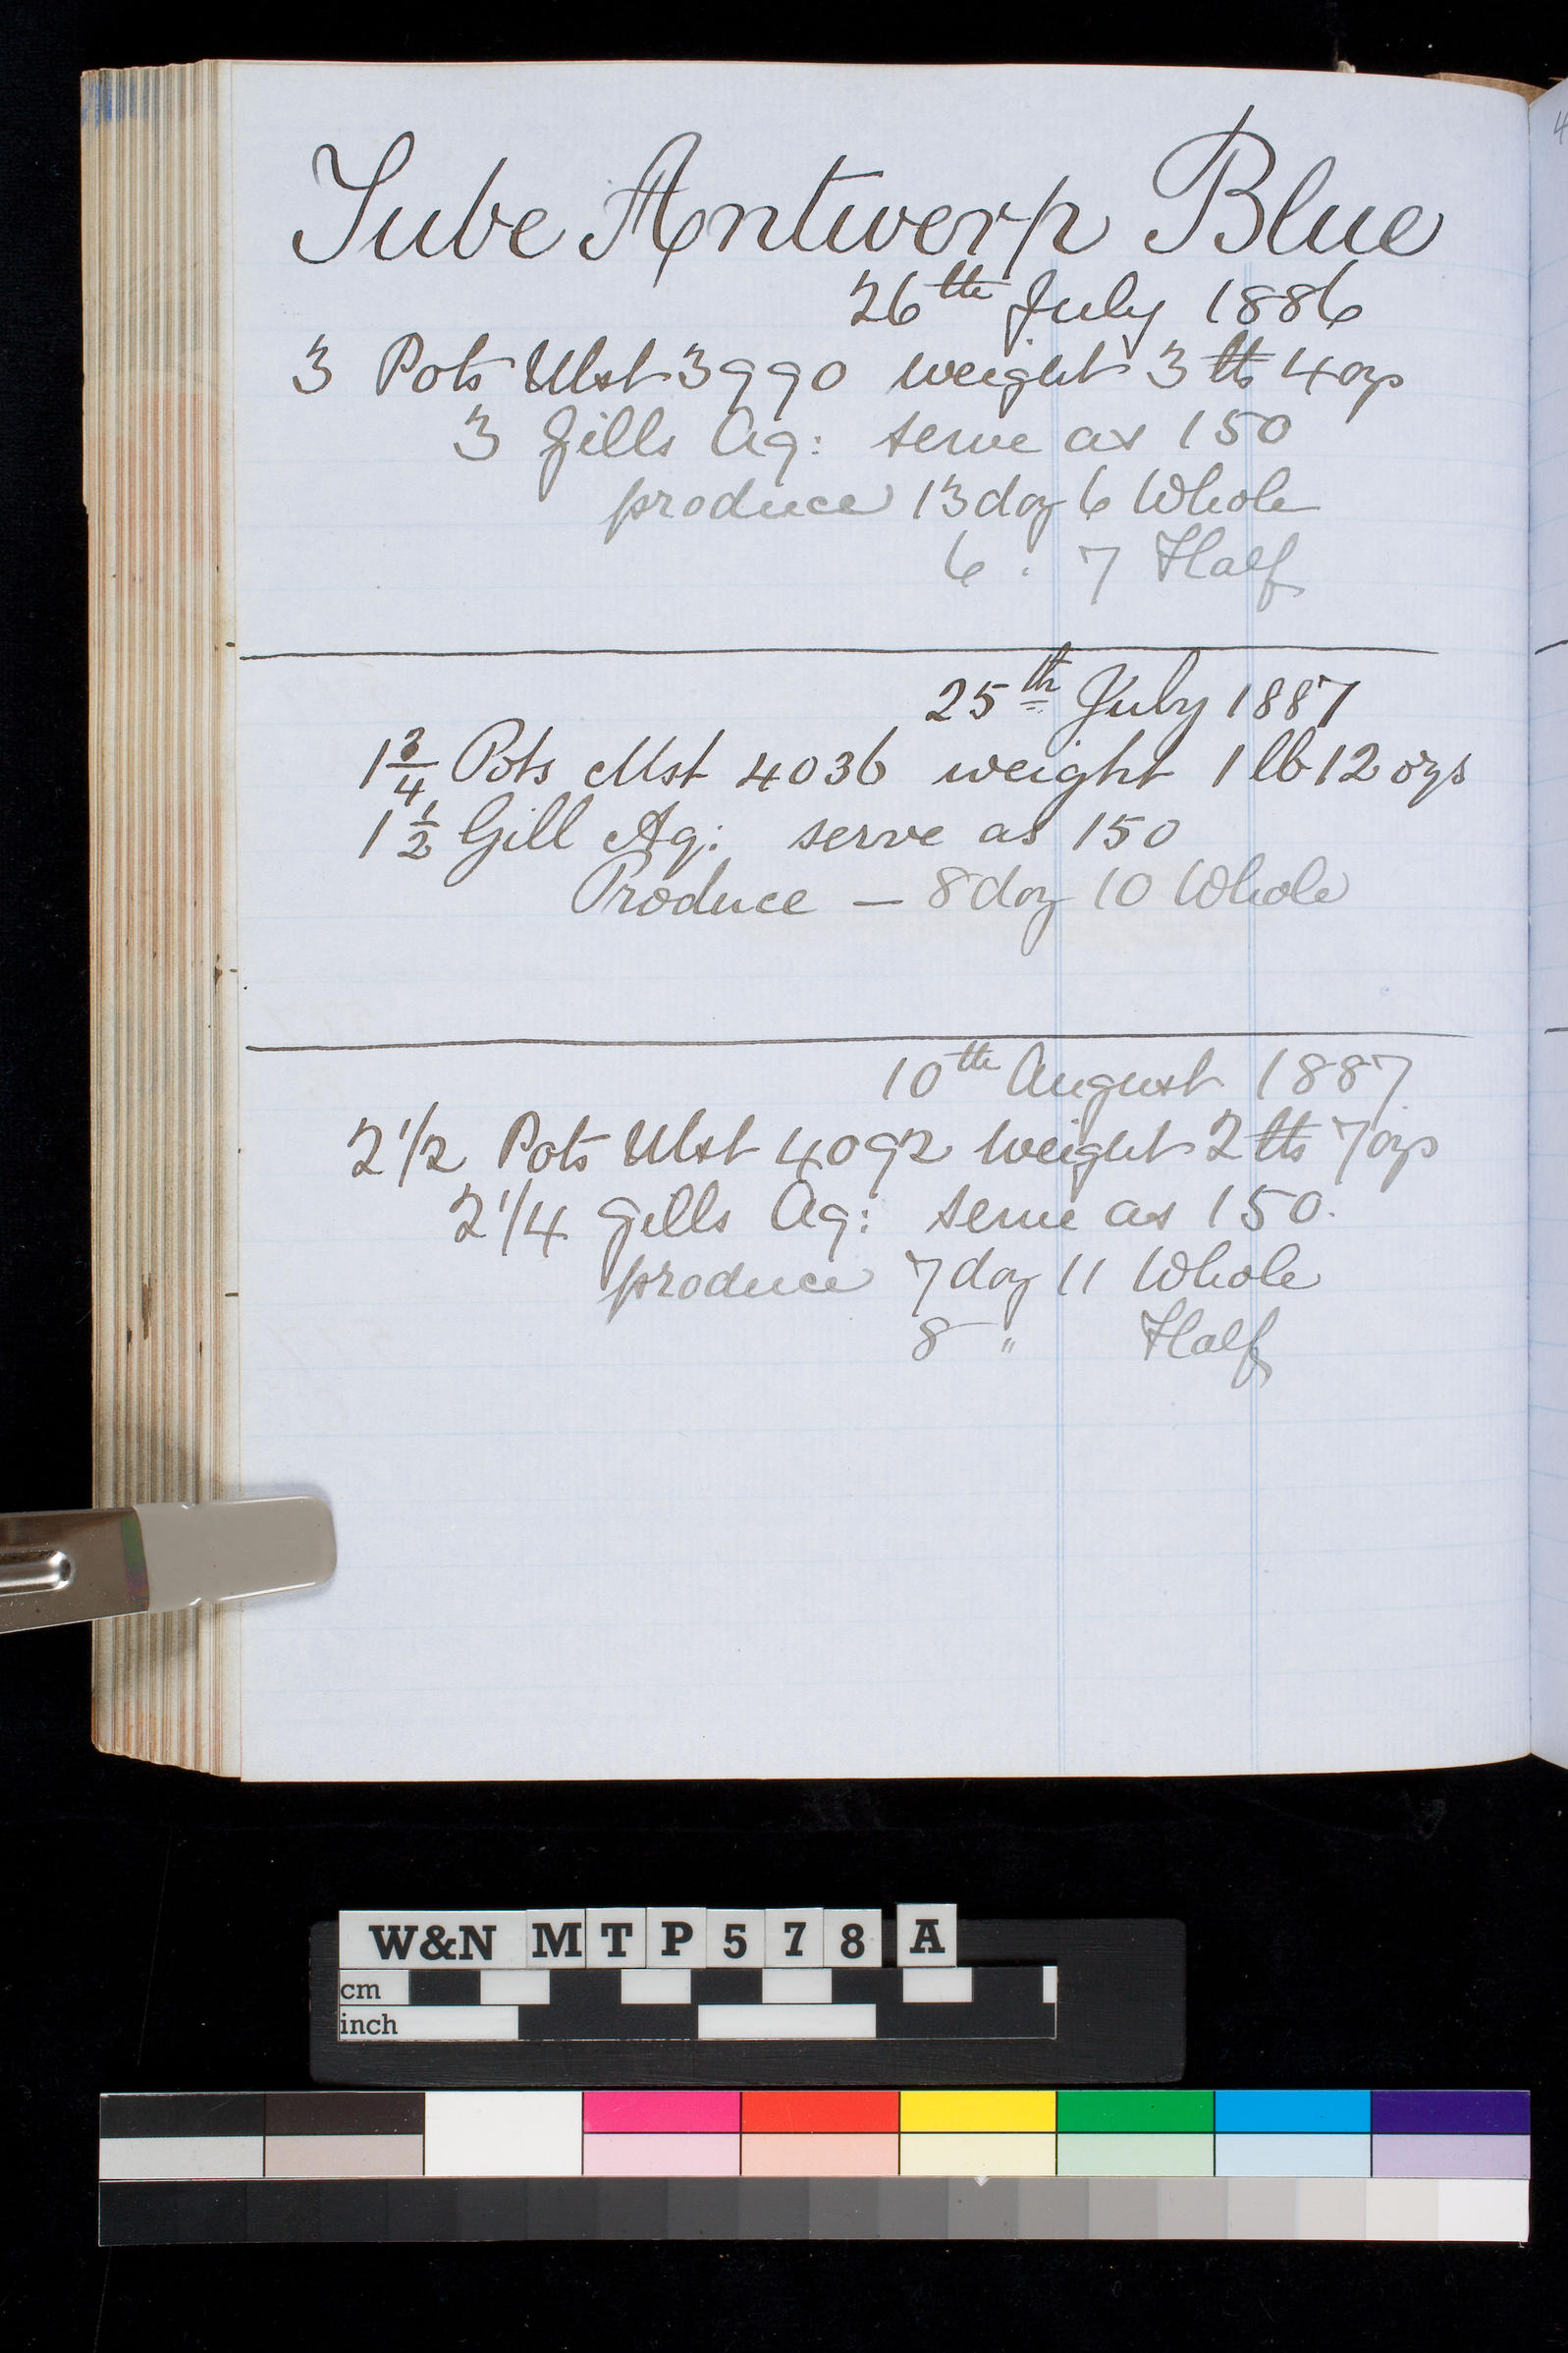 Tube Antwerp Blue
26th July 1886
3 Pots Mst 3990 weight 3 lbs 4 ozs
3 Gills Aq: serve as 150
produce 13 doz 6 Whole
6 . 7 Half
25th July 1887
1 3/4 Pots Mst 4036 weight 1 lb 12 ozs
1 1/2 Gill Aq: serve as 150
Produce — 8 doz 10 Whole
10th August 1887
2 1/2 Pots Mst 4092 weight 2 lbs 7 ozs
2 1/4 gills Aq: serve as 150.
produce 7 doz 11 Whole
8 " Half
W&N MTP578A
cm
inch